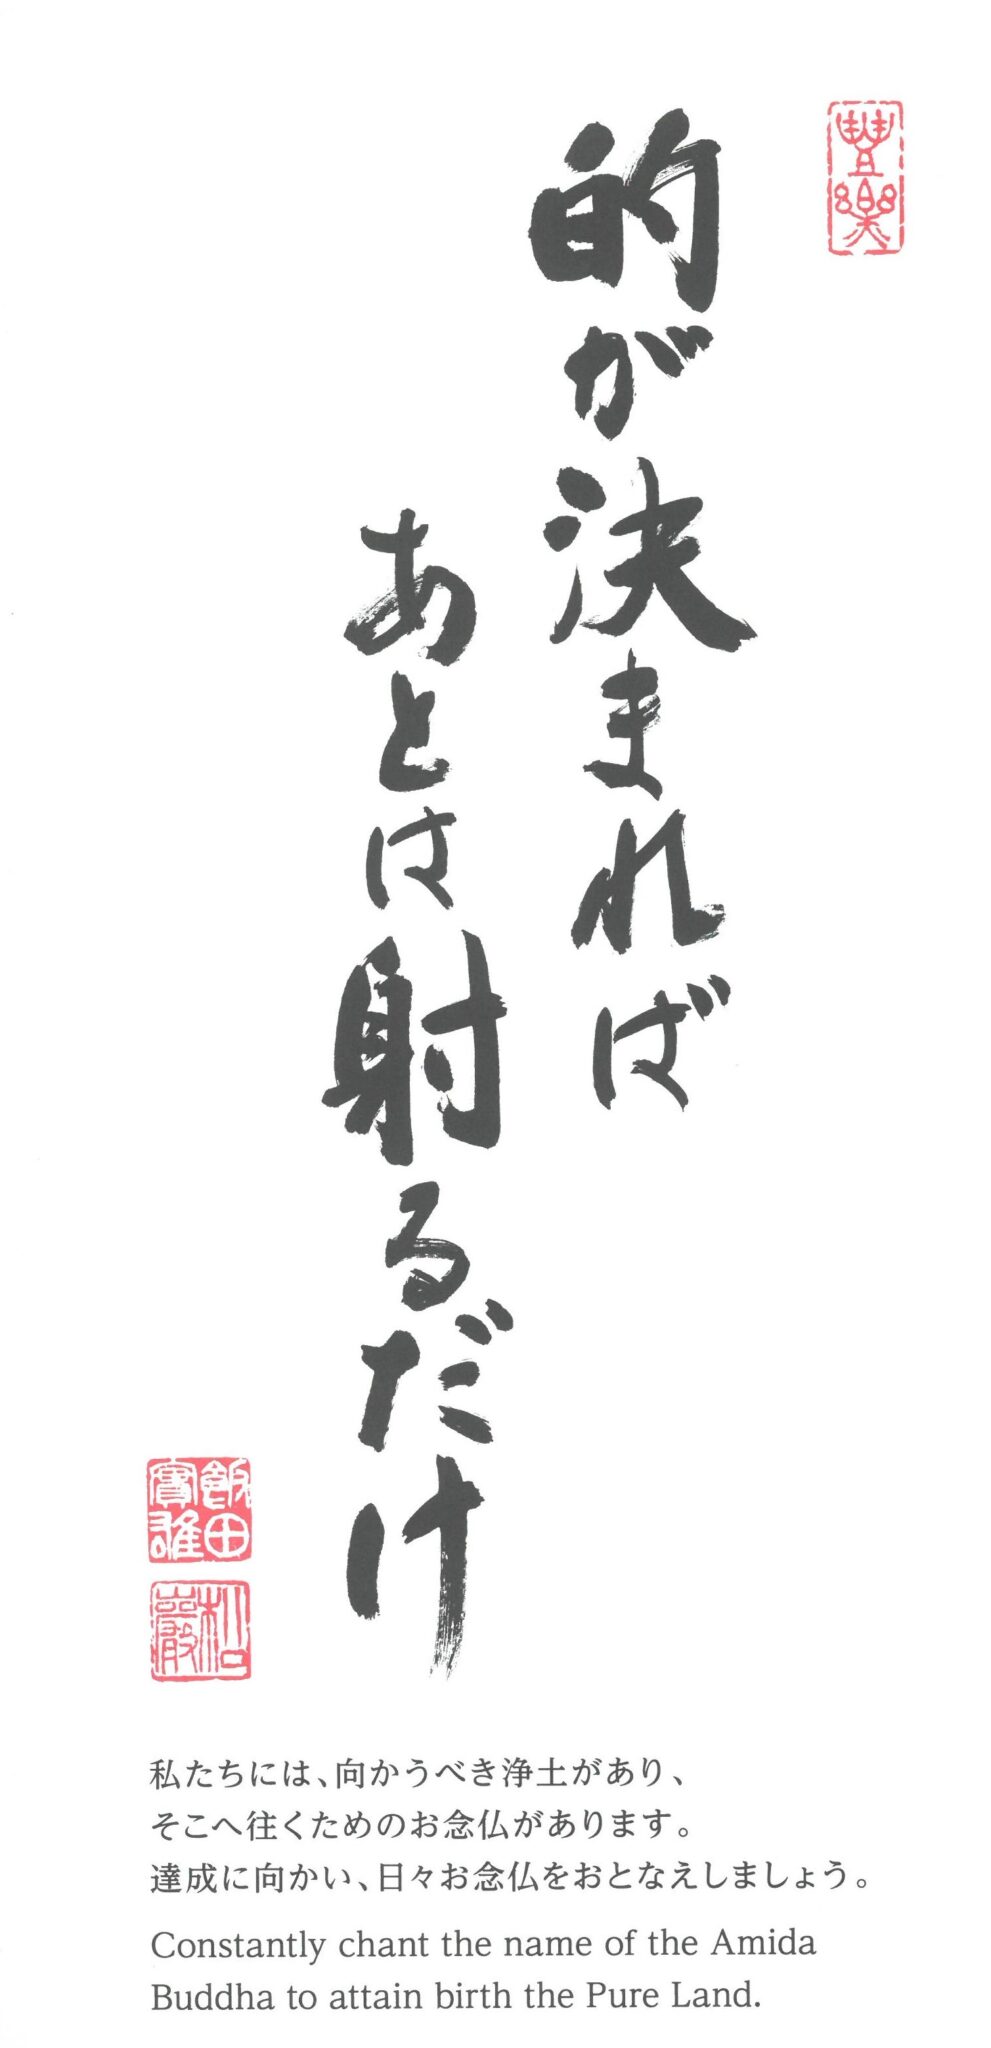 豊樂
的が決まれば
あとは射るだけ
飯田
實雄
私たちには、向かうべき浄土があり、
そこへ往くためのお念仏があります。
達成に向かい、日々お念仏をおとなえしましょう。
Constantly chant the name of the Amida
Buddha to attain birth the Pure Land.